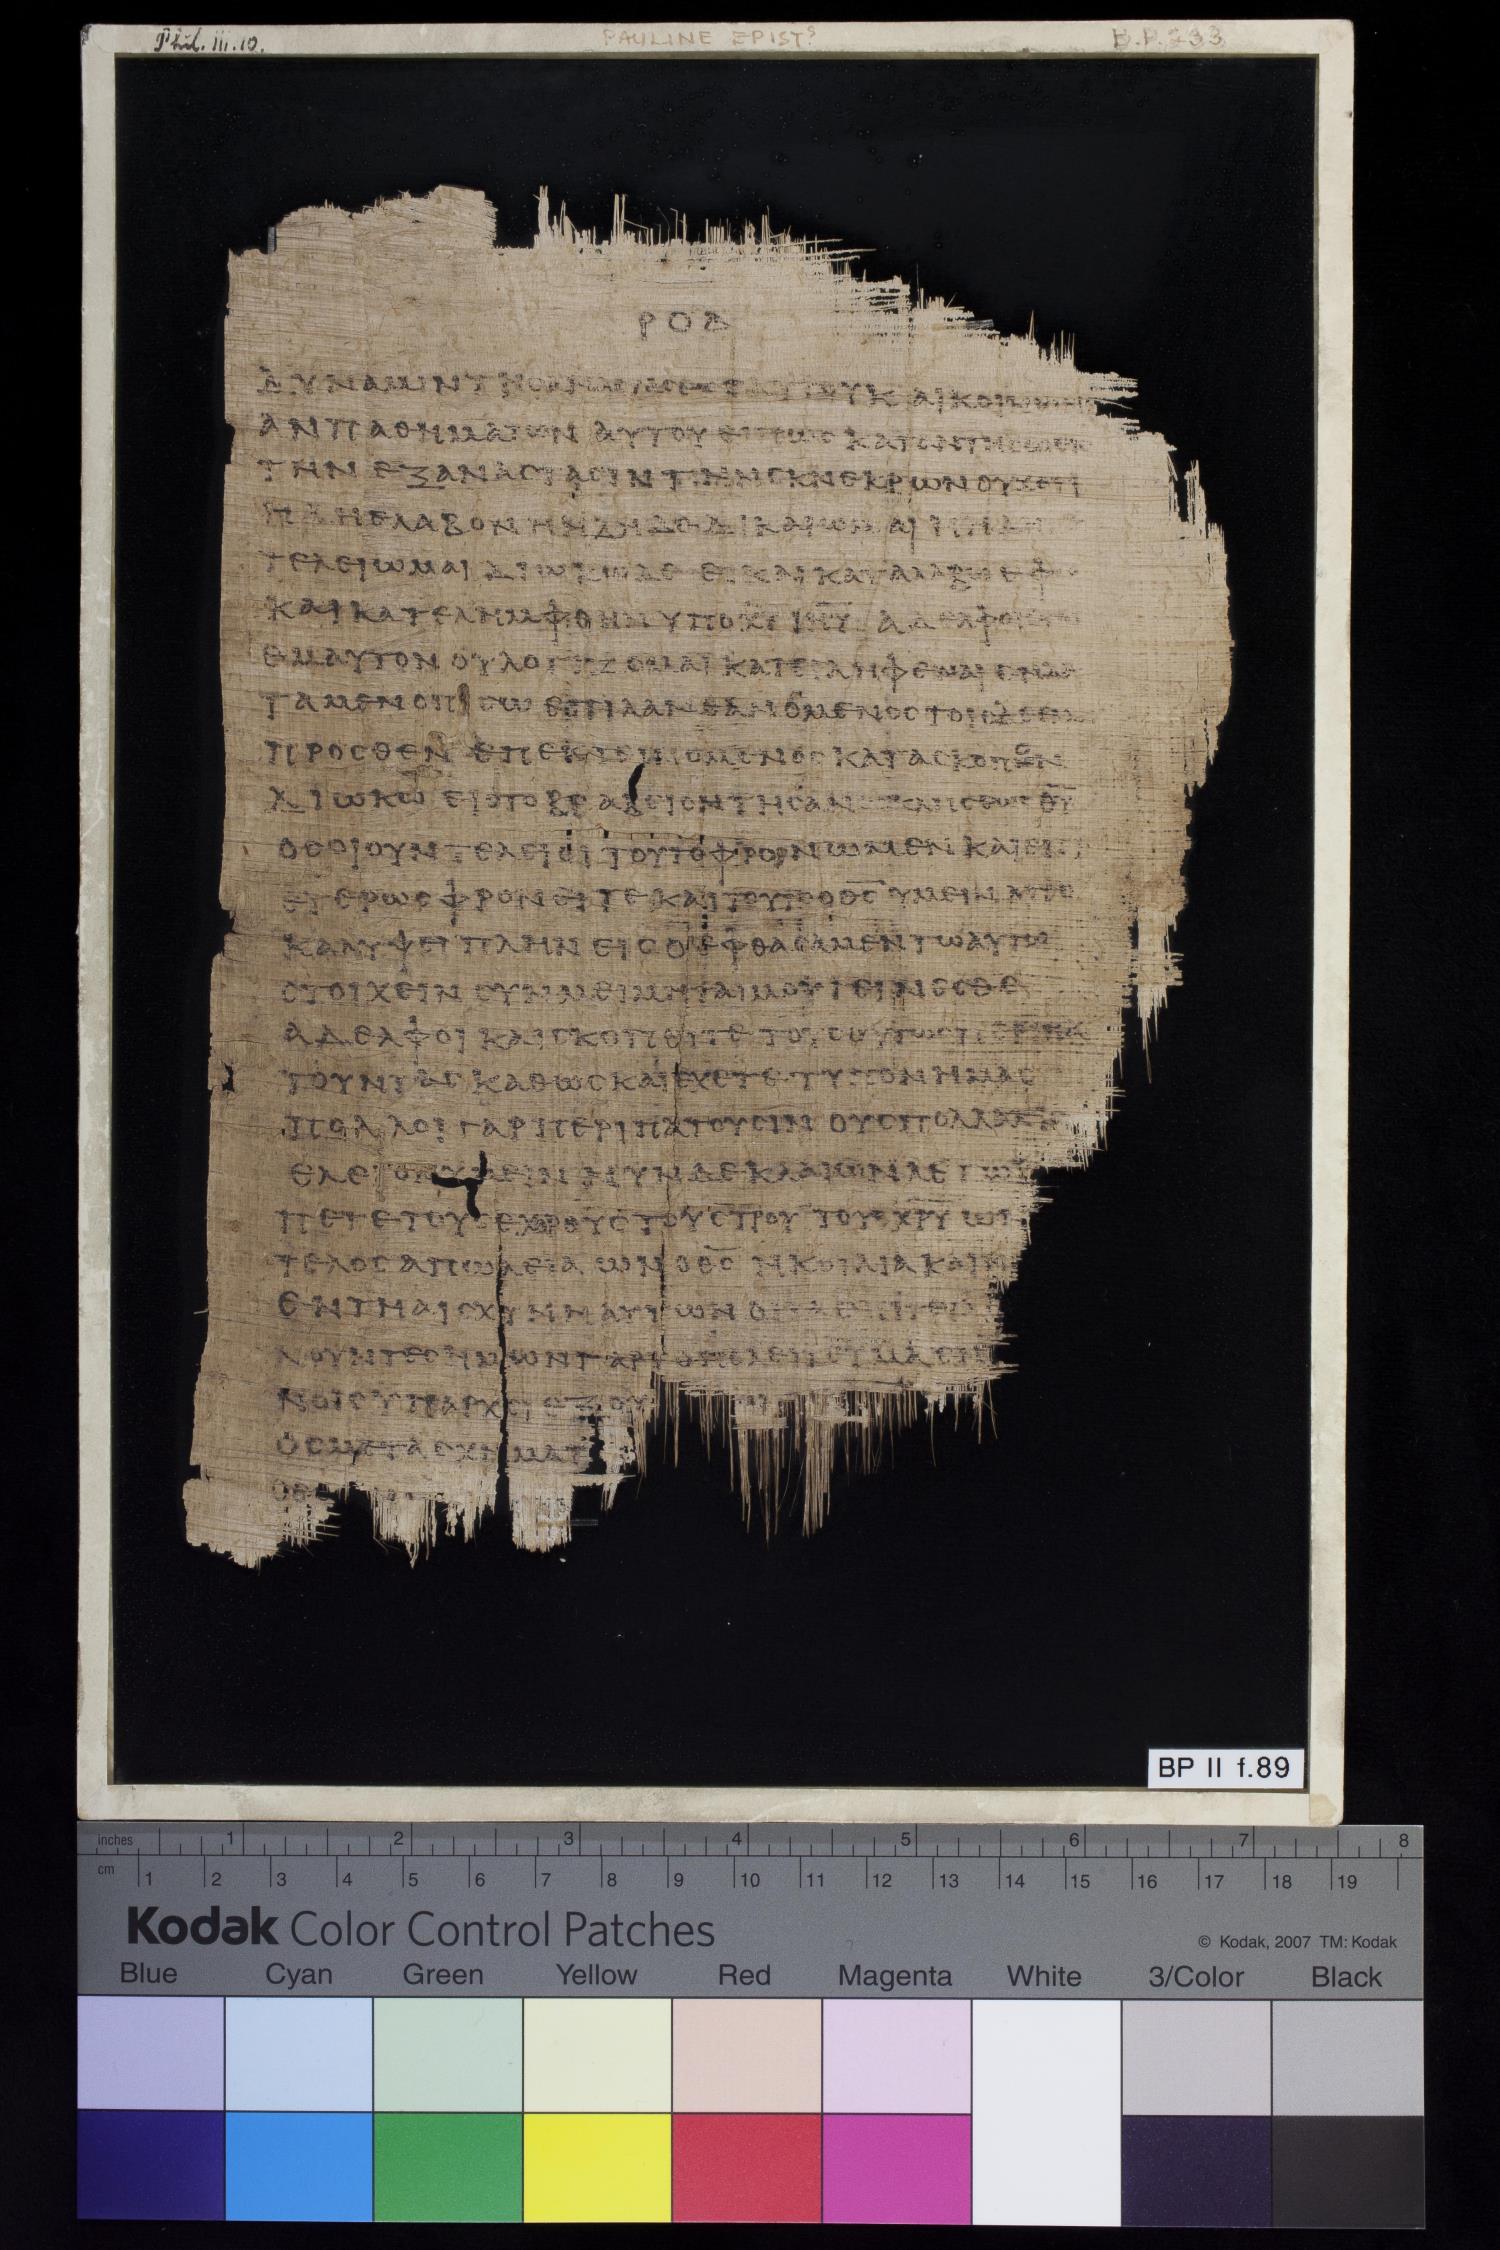 Phil. III. 10.
PAULINE EPIST?
B.P. 233
ΡΟΔ
ΔΥΝΑΜΙΝΤΗϹΑΝΑϹΤΑϹΕΩϹΑΥΤΟΥΚΑΙΚΟΙΝΩΝΙ
ΑΝΠΑΘΗΜΑΤΩΝΑΥΤΟΥΕΙΠΩϹΚΑΤΑΝΤΗϹΩΕΙϹ
ΤΗΝΕΞΑΝΑϹΤΑϹΙΝΤΗΝΕΚΝΕΚΡΩΝΟΥΧΟΤΙ
ΗΔΗΕΛΑΒΟΝΗΗΔΗΔΕΔΙΚΑΙΩΜΑΙΗΗΔΗ
ΤΕΛΕΙΩΜΑΙΔΙΩΚΩΔΕΕΙΚΑΙΚΑΤΑΛΑΒΩΕΦ
ΚΑΙΚΑΤΕΛΗΜΦΘΗΝΥΠΟΧΡΙΗΥΑΔΕΛΦΟΙΕΓΩ
ΕΜΑΥΤΟΝΟΥΛΟΓΙΖΟΜΑΙΚΑΤΕΙΛΗΦΕΝΑΙΕΝΔΕ
ΤΑΜΕΝΟΠΙϹΩΕΠΙΛΑΝΘΑΝΟΜΕΝΟϹΤΟΙϹΔΕΕΜ
ΠΡΟϹΘΕΝΕΠΕΚΤΕΙΝΟΜΕΝΟϹΚΑΤΑϹΚΟΠΟΝ
ΔΙΩΚΩΕΙϹΤΟΒΡΑΒΕΙΟΝΤΗϹΑΝΩΚΛΗϹΕΩϹΘΥ
ΟϹΟΙΟΥΝΤΕΛΕΙΟΙΤΟΥΤΟΦΡΟΝΩΜΕΝΚΑΙΕΙΤΙ
ΕΤΕΡΩϹΦΡΟΝΕΙΤΕΚΑΙΤΟΥΤΟΟΘϹΥΜΕΙΝΑΠΟ
ΚΑΛΥΨΕΙΠΛΗΝΕΙϹΟΕΦΘΑϹΑΜΕΝΤΩΑΥΤΩ
ϹΤΟΙΧΕΙΝϹΥΝΜΕΙΜΗΤΑΙΜΟΥΓΕΙΝΕϹΘΕ
ΑΔΕΛΦΟΙΚΑΙϹΚΟΠΕΙΤΕΤΟΥϹΟΥΤΩϹΠΕΡΙΠΑ
ΤΟΥΝΤΑϹΚΑΘΩϹΚΑΙΕΧΕΤΕΤΥΠΟΝΗΜΑϹ
ΠΟΛΛΟΙΓΑΡΠΕΡΙΠΑΤΟΥϹΙΝΟΥϹΠΟΛΛΑΚΙϹ
ΕΛΕΓΟΝΥΜΕΙΝΝΥΝΔΕΚΛΑΙΩΝΛΕΓΩ
ΠΕΤΕΤΟΥϹΕΧΘΡΟΥϹΤΟΥϹΤΡΟΥΤΟΥΧΡΥΩΝ
ΤΕΛΟϹΑΠΩΛΕΙΑΩΝΟΘϹΗΚΟΙΛΙΑΚΑΙΗ
ΕΝΤΗΑΙϹΧΥΝΗΑΥΤΩΝΟΙΤΑΕΠΙΓΕΙΑ
ΝΟΥΝΤΕϹΗΜΩΝΓΑΡΤΟΠΟΛΕΙΤΕΥΜΑΕΝ
ΝΟΙϹΥΠΑΡΧΕΙΕΞΟΥ
ΟϹΜΕΤΑϹΧΗΜΑΤ
BP II f.89
inches 1 2 3 4 5 6 7 8
cm 1 2 3 4 5 6 7 8 9 10 11 12 13 14 15 16 17 18 19
Kodak Color Control Patches
© Kodak, 2007 TM: Kodak
Blue Cyan Green Yellow Red Magenta White 3/Color Black